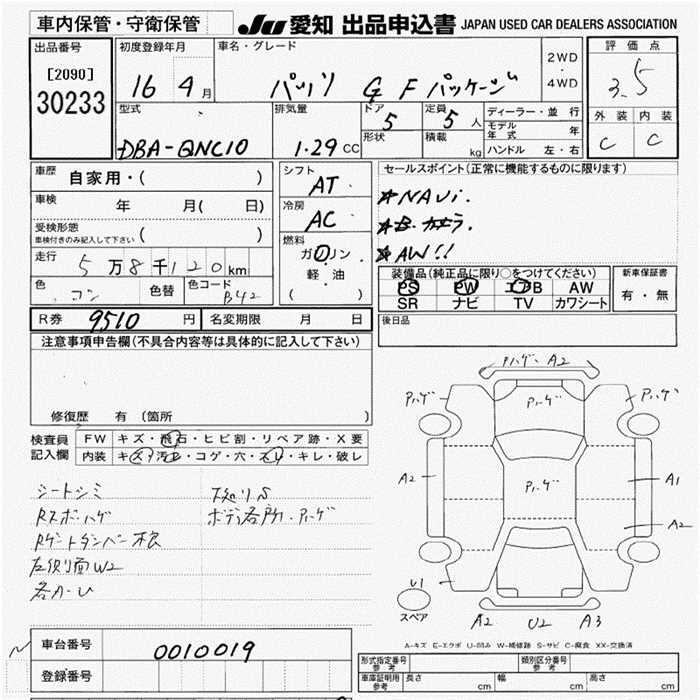 車内保管・守衛保管
JU 愛知 出品申込書 JAPAN USED CAR DEALERS ASSOCIATION
出品番号
[2090]
30233
初度登録年月
16 4月
車名・グレード
G F パッケージ
2WD
・
4WD
評価点
3.5
外装 内装
C C
型式
DBA-QNC10
排気量
1.29CC
ドア
5
形状
定員
5人
積載
kg
ディーラー・並行
モデル年式 年
ハンドル 左・右
車歴
自家用・( )
車検
年 月( 日)
受検形態
車検付きのみ記入して下さい ( )
走行
5万8千120km
色
コン
色替
色コード
B42
シフト
AT
冷房
AC
燃料
ガソリン
・
軽油
( )
セールスポイント(正常に機能するものに限ります)
★NAVi.
★AW!!
装備品(純正品に限り○をつけてください)
PS PW エアB AW
SR ナビ TV カワシート
新車保証書
有・無
R券 9510円
名変期限 月 日
後日品
注意事項申告欄(不具合内容等は具体的に記入して下さい)
修復歴 有(箇所 )
検査員記入欄
FW キズ・飛石・ヒビ割・リペア跡・X要
内装 キズ・汚れ・コゲ・穴・スレ・キレ・破レ
シートシミ
RスポハゲRゲートダンパー不良
左リ面W2
各A・U
下廻りS
ボディ各所・Pハゲ
Pハゲ・A2
Pハゲ
Pハゲ
Pハゲ
Pハゲ
A2
A1
A2
U1
スペア
A2 U2 A3
A-キズ E-エクボ U-凹み W-補修跡 S-サビ C-腐食 XX-交換済
車台番号
0010019
登録番号
型式指定番号
参考
類別区分番号
参考
車庫証明用
参考
長さ cm 幅 cm 高さ cm